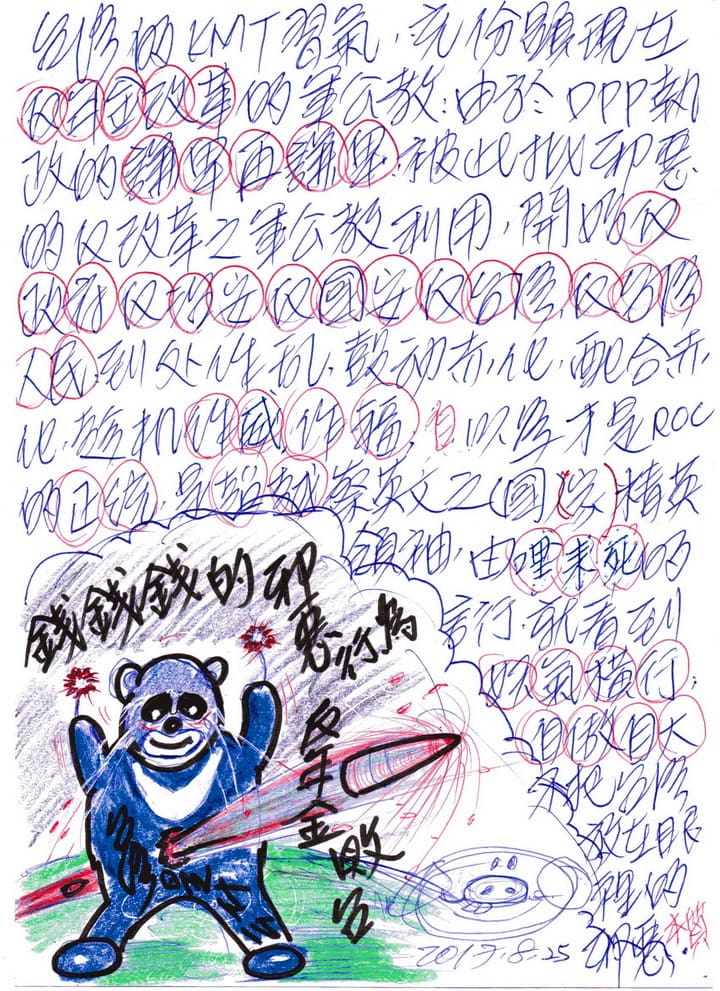 台灣的KMT習氣,充份顯現在
反年金改革的軍公教:由於DPP執
政的謙卑再謙卑,被此批邪惡
的反改革之軍公教利用,開始反
政府反接安反國安反台灣反台灣
人民,到处作乱,鼓动赤化,配合赤
化,趁机作威作福,自以為才是ROC
的正統,是超越蔡英文之(國家)精英
領袖,由哩來死的
言行,就看到
妖氣橫行;
自傲自大
不把台灣
放在眼
裡的
邪惡.
錢錢錢的邪惡行為
反年金敗台
2017.8.25